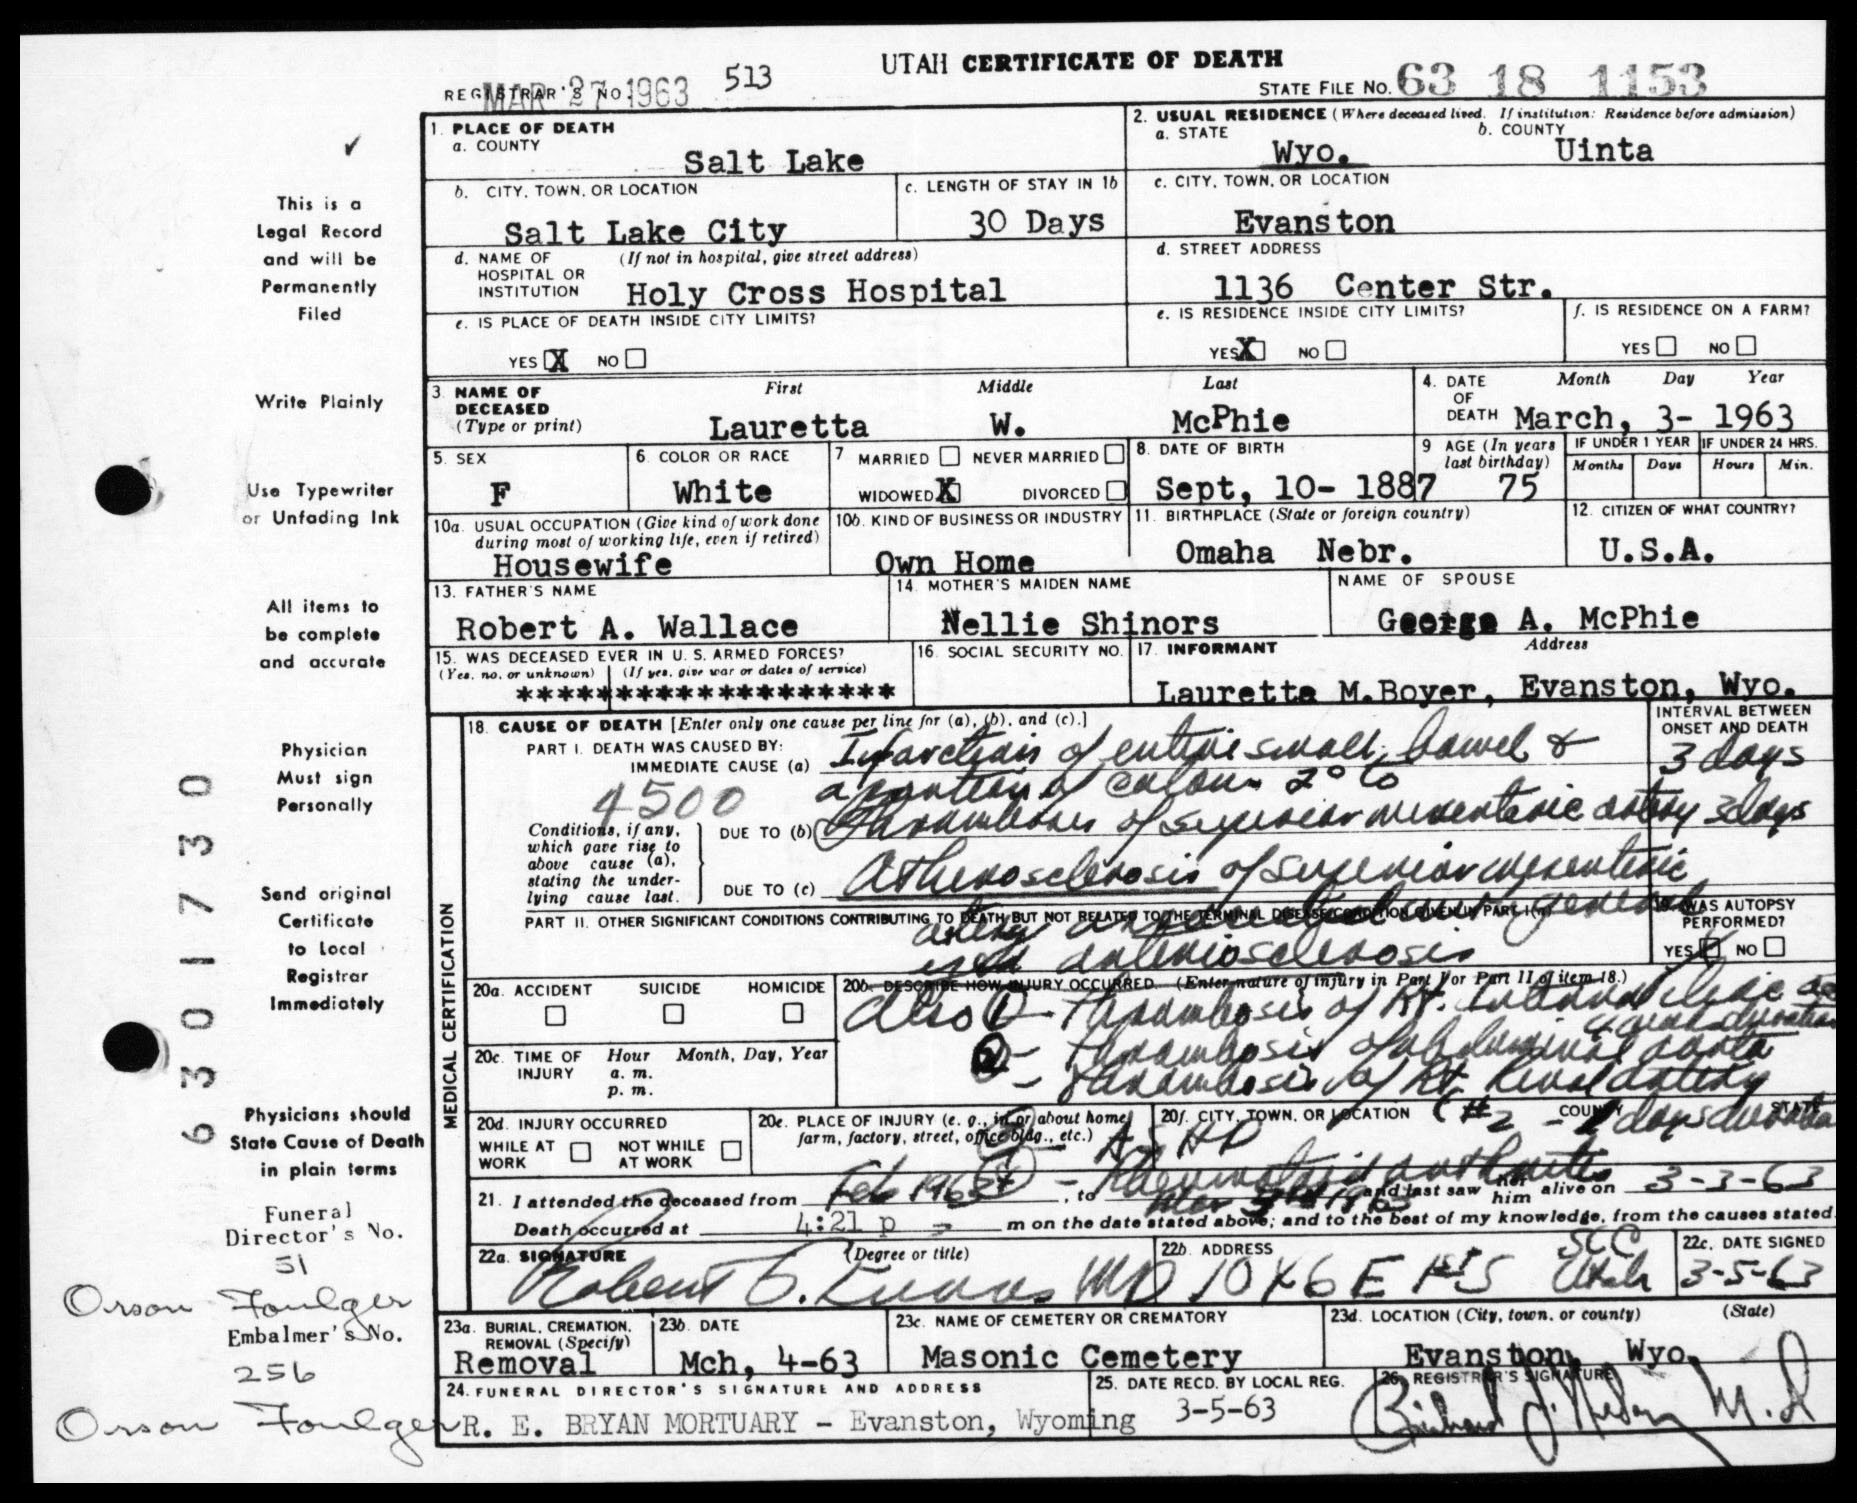 UTAH CERTIFICATE OF DEATH
REGISTRAR'S NO. MAR 27 1963 513
STATE FILE NO. 63 18 1153
1. PLACE OF DEATH
a. COUNTY
Salt Lake
2. USUAL RESIDENCE (Where deceased lived. If institution: Residence before admission)
a. STATE b. COUNTY
Wyo. Uinta
b. CITY, TOWN, OR LOCATION
Salt Lake City
c. LENGTH OF STAY IN 1b
30 Days
c. CITY, TOWN, OR LOCATION
Evanston
d. NAME OF HOSPITAL OR INSTITUTION (If not in hospital, give street address)
Holy Cross Hospital
d. STREET ADDRESS
1136 Center Str.
e. IS PLACE OF DEATH INSIDE CITY LIMITS?
YES X NO
e. IS RESIDENCE INSIDE CITY LIMITS?
YES X NO
f. IS RESIDENCE ON A FARM?
YES NO
3. NAME OF DECEASED (Type or print)
First Middle Last
Lauretta W. McPhie
4. DATE OF DEATH Month Day Year
March, 3- 1963
5. SEX
F
6. COLOR OR RACE
White
7 MARRIED NEVER MARRIED
WIDOWED X DIVORCED
8. DATE OF BIRTH
Sept, 10- 1887
9 AGE (In years last birthday)
75
IF UNDER 1 YEAR IF UNDER 24 HRS.
Months Days Hours Min.
10a. USUAL OCCUPATION (Give kind of work done during most of working life, even if retired)
Housewife
10b. KIND OF BUSINESS OR INDUSTRY
Own Home
11. BIRTHPLACE (State or foreign country)
Omaha Nebr.
12. CITIZEN OF WHAT COUNTRY?
U.S.A.
13. FATHER'S NAME
Robert A. Wallace
14. MOTHER'S MAIDEN NAME
Nellie Shinors
NAME OF SPOUSE
George A. McPhie
15. WAS DECEASED EVER IN U. S. ARMED FORCES?
(Yes, no, or unknown) (If yes, give war or dates of service)
*******************
16. SOCIAL SECURITY NO.
17. INFORMANT Address
Lauretta M.Boyer, Evanston, Wyo.
MEDICAL CERTIFICATION
18. CAUSE OF DEATH [Enter only one cause per line for (a), (b), and (c).]
INTERVAL BETWEEN ONSET AND DEATH
PART I. DEATH WAS CAUSED BY:
IMMEDIATE CAUSE (a) Infarction of entire small bowel & 3 days
4500 a portion of colon 2° to
Conditions, if any, which gave rise to above cause (a), stating the underlying cause last.
DUE TO (b) Thrombosis of superior mesenteric artery 3 days
DUE TO (c) Atherosclerosis of superior mesenteric
PART II. OTHER SIGNIFICANT CONDITIONS CONTRIBUTING TO DEATH BUT NOT RELATED TO THE TERMINAL DISEASE CONDITION GIVEN IN PART I(a)
artery general
arteriosclerosis
19. WAS AUTOPSY PERFORMED?
YES NO
20a. ACCIDENT SUICIDE HOMICIDE
20b. DESCRIBE HOW INJURY OCCURRED. (Enter nature of injury in Part I or Part II of item 18.)
Also 1 - Thrombosis of Rt. Iliac
2 - Thrombosis of abdominal aorta
- Thrombosis of Rt. Renal artery
20c. TIME OF INJURY Hour Month, Day, Year
a. m.
p. m.
20d. INJURY OCCURRED
WHILE AT WORK NOT WHILE AT WORK
20e. PLACE OF INJURY (e. g., in or about home, farm, factory, street, office bldg., etc.)
20f. CITY, TOWN, OR LOCATION COUNTY STATE
A S H D
Rheumatoid arthritis
21. I attended the deceased from Feb 1963, to Mar 1963 and last saw her him alive on 3-3-63
Death occurred at 4:21 p m on the date stated above; and to the best of my knowledge, from the causes stated.
22a. SIGNATURE (Degree or title)
Robert MD
22b. ADDRESS
1046 E 1st S SLC Utah
22c. DATE SIGNED
3-5-63
23a. BURIAL, CREMATION, REMOVAL (Specify)
Removal
23b. DATE
Mch, 4-63
23c. NAME OF CEMETERY OR CREMATORY
Masonic Cemetery
23d. LOCATION (City, town, or county) (State)
Evanston, Wyo.
24. FUNERAL DIRECTOR'S SIGNATURE AND ADDRESS
R. E. BRYAN MORTUARY - Evanston, Wyoming
25. DATE RECD. BY LOCAL REG.
3-5-63
26. REGISTRAR'S SIGNATURE
Richard M.D
This is a
Legal Record
and will be
Permanently
Filed
Write Plainly
Use Typewriter
or Unfading Ink
All items to
be complete
and accurate
Physician
Must sign
Personally
Send original
Certificate
to Local
Registrar
Immediately
Physicians should
State Cause of Death
in plain terms
Funeral
Director's No.
51
Orson Foulger
Embalmer's No.
256
Orson Foulger
6301730